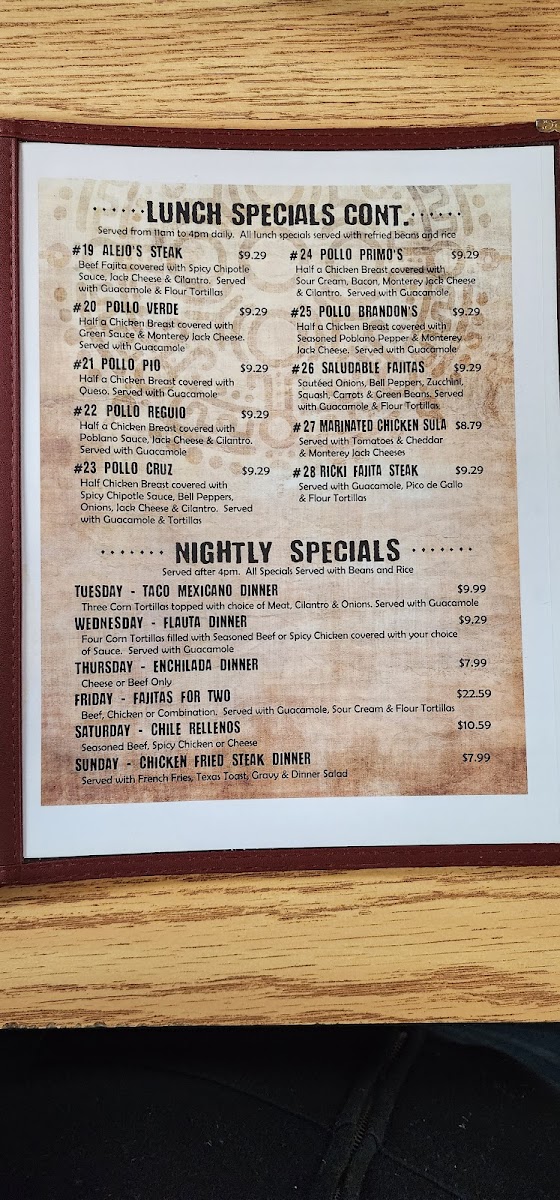 LUNCH SPECIALS CONT.
Served from 11am to 4pm daily. All lunch specials served with refried beans and rice
#19 ALEJO'S STEAK $9.29
Beef Fajita covered with Spicy Chipotle
Sauce, Jack Cheese & Cilantro. Served
with Guacamole & Flour Tortillas
#20 POLLO VERDE $9.29
Half a Chicken Breast covered with
Green Sauce & Monterey Jack Cheese.
Served with Guacamole
#21 POLLO PIO $9.29
Half a Chicken Breast covered with
Queso. Served with Guacamole
#22 POLLO REGUIO $9.29
Half a Chicken Breast covered with
Poblano Sauce, Jack Cheese & Cilantro.
Served with Guacamole
#23 POLLO CRUZ $9.29
Half Chicken Breast covered with
Spicy Chipotle Sauce, Bell Peppers,
Onions, Jack Cheese & Cilantro. Served
with Guacamole & Tortillas
#24 POLLO PRIMO'S $9.29
Half a Chicken Breast covered with
Sour Cream, Bacon, Monterey Jack Cheese
& Cilantro. Served with Guacamole
#25 POLLO BRANDON'S $9.29
Half a Chicken Breast covered with
Seasoned Poblano Pepper & Monterey
Jack Cheese. Served with Guacamole
#26 SALUDABLE FAJITAS $9.29
Sautéed Onions, Bell Peppers, Zucchini,
Squash, Carrots & Green Beans. Served
with Guacamole & Flour Tortillas.
#27 MARINATED CHICKEN SULA $8.79
Served with Tomatoes & Cheddar
& Monterey Jack Cheeses
#28 RICKI FAJITA STEAK $9.29
Served with Guacamole, Pico de Gallo
& Flour Tortillas
NIGHTLY SPECIALS
Served after 4pm. All Specials Served with Beans and Rice
TUESDAY - TACO MEXICANO DINNER $9.99
Three Corn Tortillas topped with choice of Meat, Cilantro & Onions. Served with Guacamole
WEDNESDAY - FLAUTA DINNER $9.29
Four Corn Tortillas filled with Seasoned Beef or Spicy Chicken covered with your choice
of Sauce. Served with Guacamole
THURSDAY - ENCHILADA DINNER $7.99
Cheese or Beef Only
FRIDAY - FAJITAS FOR TWO $22.59
Beef, Chicken or Combination. Served with Guacamole, Sour Cream & Flour Tortillas
SATURDAY - CHILE RELLENOS $10.59
Seasoned Beef, Spicy Chicken or Cheese
SUNDAY - CHICKEN FRIED STEAK DINNER $7.99
Served with French Fries, Texas Toast, Gravy & Dinner Salad